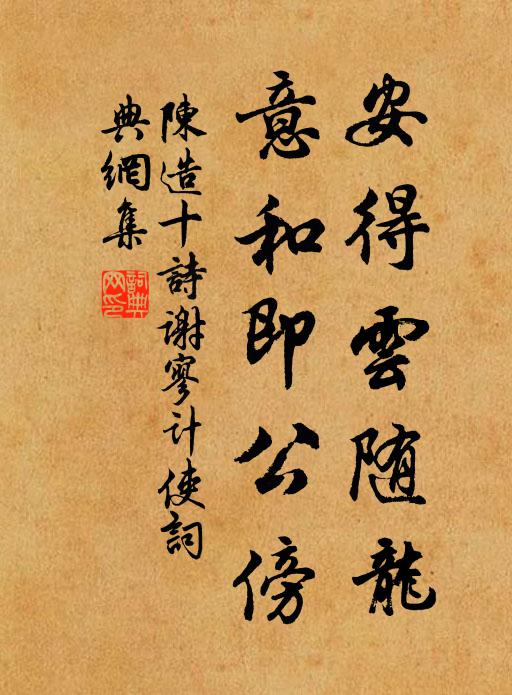 安得雲随龍
意和即公傍
陳造十詩谢寥计使詞
典網集
詞典网印